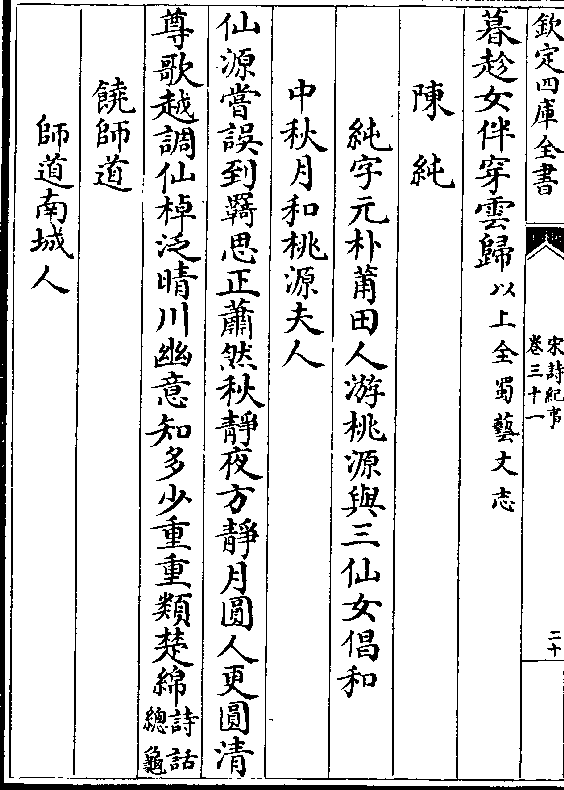 欽定四庫全書
宋詩紀事
卷三十一
二十
暮趁女伴穿雲歸以上全蜀藝文志
陳純
純字元朴莆田人游桃源與三仙女倡和
中秋月和桃源夫人
仙源嘗誤到羇思正蕭然秋靜夜方靜月圓人更圓清
尊歌越調仙棹泛晴川幽意知多少重重類楚綿詩話
總龜
饒師道
師道南城人